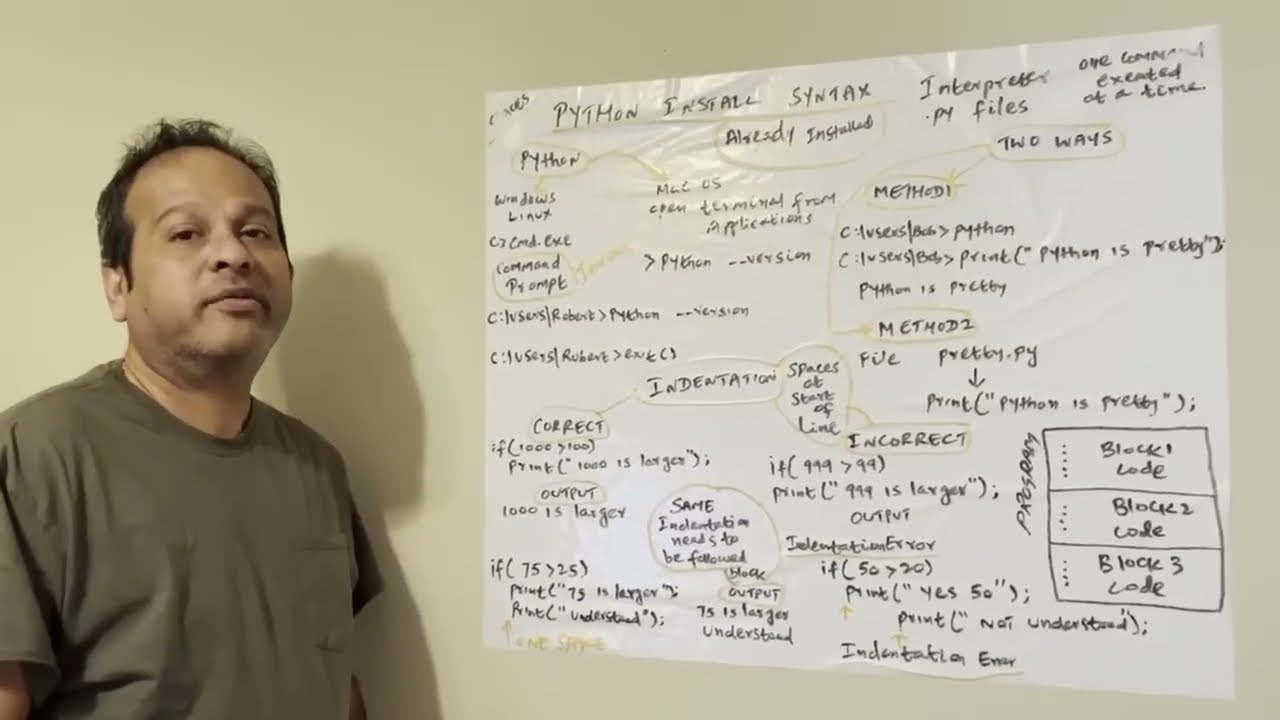 PYTHON INSTALL SYNTAX
Already Installed
Interpreter
.py files
one command
executed
at a time.
Python
Windows
Linux
Mac OS
open terminal from
Applications
C>cmd.exe
Command
Prompt
>Python --version
C:\Users\Robert>Python --version
C:\Users\Robert>exit()
TWO WAYS
METHOD1
C:\Users\Bob>python
C:\Users\Bob>print("Python is pretty");
Python is pretty
METHOD2
File pretty.py
print("Python is pretty");
INDENTATION
Spaces
at
start
of
line
CORRECT
if(1000>100)
print("1000 is larger");
OUTPUT
1000 is larger
SAME
Indentation
needs to
be followed
block
if(75>25)
print("75 is larger");
print("understood");
ONE SPACE
OUTPUT
75 is larger
understood
INCORRECT
if(999>99)
print("999 is larger");
OUTPUT
IndentationError
if(50>20)
print("Yes 50");
print("Not understood");
Indentation Error
Block1
code
Block2
code
Block3
code